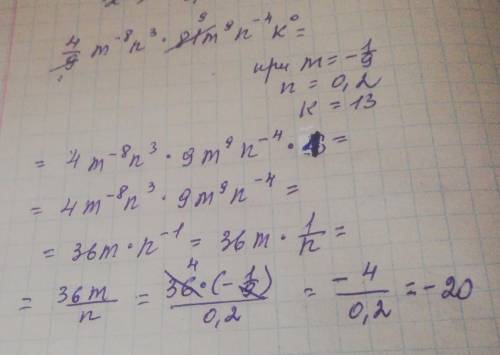 4/9 m⁻⁸n³ · 81⁹m⁹n⁻⁴k⁰ =
при m = -1/9
n = 0,2
k = 13
= 4m⁻⁸n³ · 9m⁹n⁻⁴ · 1 =
= 4m⁻⁸n³ · 9m⁹n⁻⁴ =
= 36m · n⁻¹ = 36m · 1/n =
= 36m/n = 36⁴ · (-1/9)/0,2 = -4/0,2 = -20